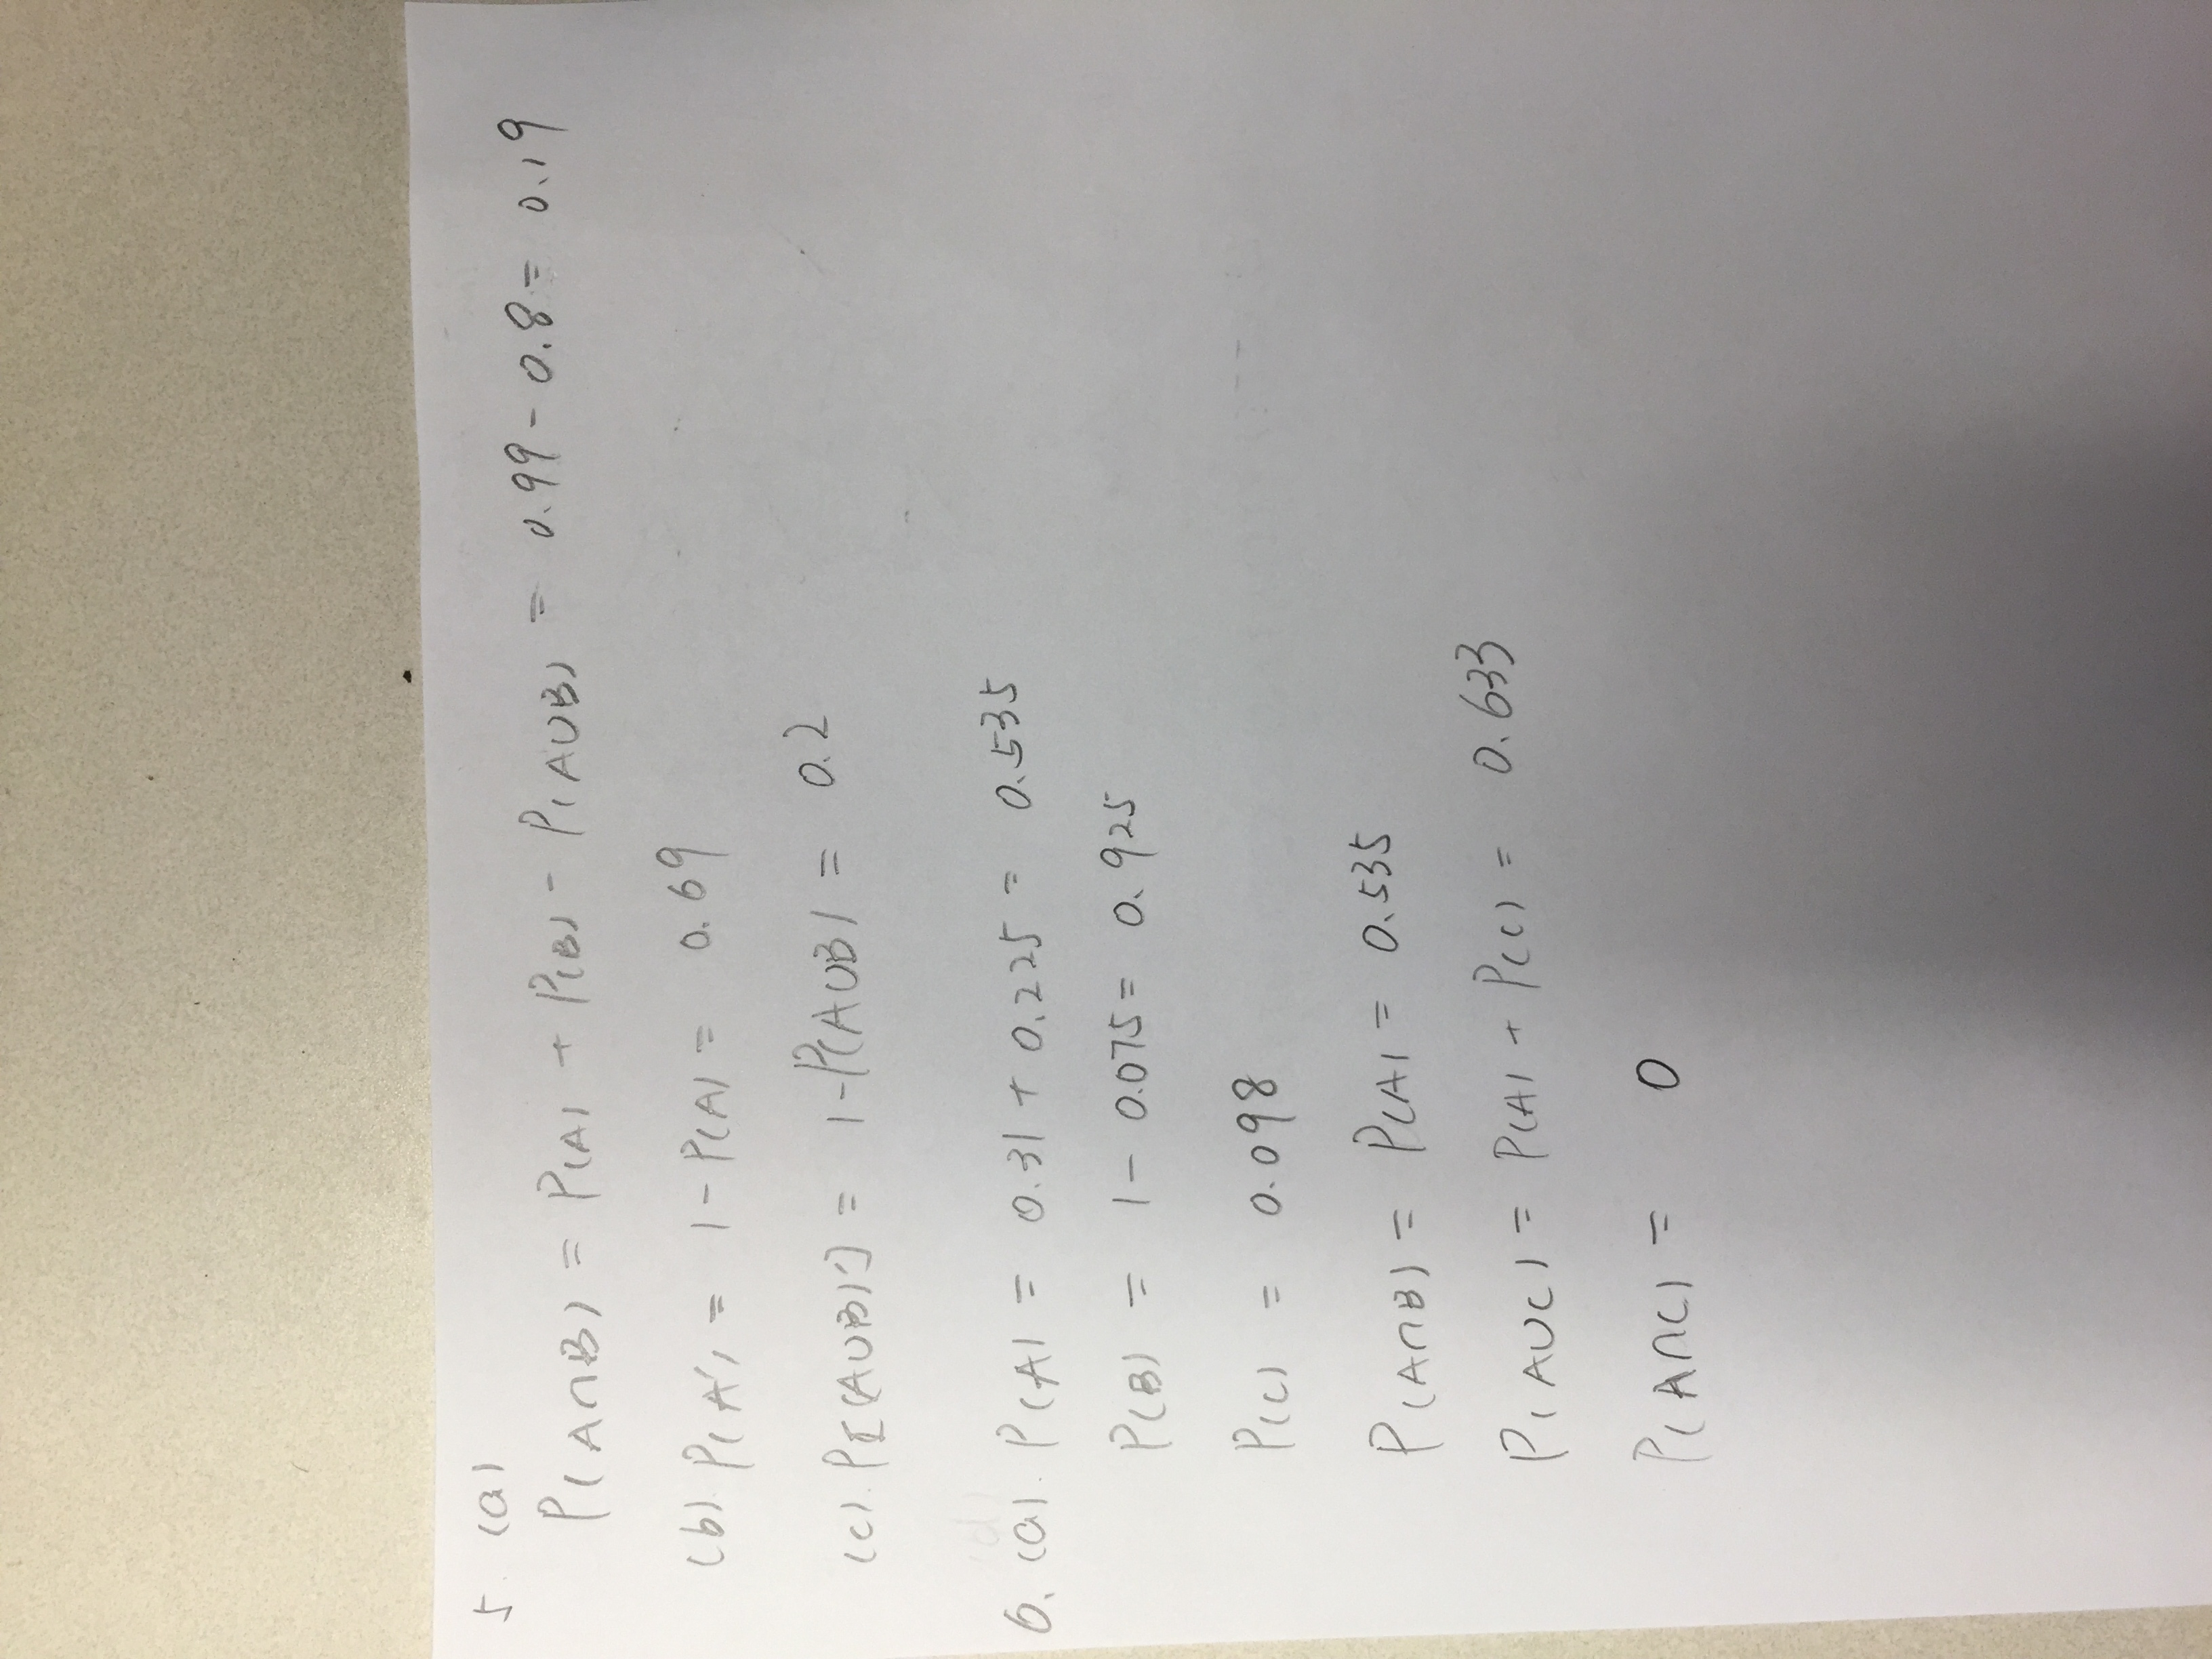 5. (a)
P(A∩B) = P(A) + P(B) - P(A∪B) = 0.99 - 0.8 = 0.19
(b) P(A') = 1 - P(A) = 0.69
(c). P[(A∪B)'] = 1 - P(A∪B) = 0.2
(d)
6. (a). P(A) = 0.31 + 0.225 = 0.535
P(B) = 1 - 0.075 = 0.925
P(C) = 0.098
P(A∩B) = P(A) = 0.535
P(A∪C) = P(A) + P(C) = 0.633
P(A∩C) = 0